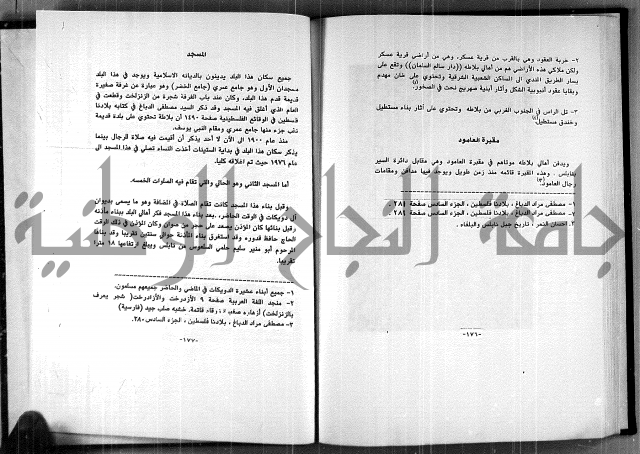 ٢- خربة العقود وهي بالقرب من قرية عسكر، وهي من أراضي قرية عسكر
ولكن ملاكي هذه الأراضي هم من أهالي بلاطه ((دار سالم السلمان)) وتقع على
يسار الطريق الى المساكن الشعبية الشرقية وتحتوي على خان مهدم
وبقايا عقود أنبوبية الشكل وآثار أبنية صهريج نحت في الصخور.
٣- تل الراس في الجنوب الغربي من بلاطه وتحتوي على آثار بناء مستطيل
وخندق مستطيل
مقبرة العامود
ويدفن أهالي بلاطه موتاهم في مقبرة العامود وهي مقابل دائرة السير
بنابلس. وهذه القبور قائمه منذ زمن طويل ويوجد فيها مدافن ومقامات
رجال العامود.
١- مصطفى مراد الدباغ، بلادنا فلسطين، الجزء السادس صفحة ٢٨١.
٢- مصطفى مراد الدباغ، بلادنا فلسطين، الجزء السادس صفحة ٢٨١.
٣- احسان النمر، تاريخ جبل نابلس والبلقاء.
-١٧٦-
المسجد
جميع سكان هذا البلد يدينون بالديانه الاسلامية ويوجد في هذا البلد
مسجدان الأول وهو جامع عمري (جامع الخضر) وهو عبارة عن غرفة صغيرة
قديمة قدم هذا البلد، وكان عند باب الغرفة شجرة من الزنزلخت وقطعت في
العام الذي أغلق فيه المسجد وقد ذكر السيد مصطفى الدباغ في كتابه بلادنا
فلسطين في الوقائع الفلسطينية صفحة ١٤٩٠ أن بلاطة تحتوي على بلدة قديمة
نقب جزء منها جامع عمري ومقام النبي يوسف.
منذ عام ١٩٠٠ الى الآن لا أحد يذكر أن أقيمت فيه صلاة الرجال بينما
يذكر سكان هذا البلد في بداية الستينات أخذت النساء تصلي في هذا المسجد الى
عام ١٩٧٦ حيث تم اغلاقه كليا.
أما المسجد الثاني وهو الحالي والتي تقام فيه الصلوات الخمسه.
وقبل بناء هذا المسجد كانت تقام الصلاة في المضافة وهو ما يسمى بديوان
آل دويكات في الوقت الحاضر، بعد بناء هذا المسجد فكر أهالي البلد ببناء مأذنه
وقبل بنائها كان المؤذن يصعد على حجر من صوان وكان المؤذن في ذلك الوقت
الحاج حافظ قدوره وقد استغرق بناء المأذنة حوالي سنتين تقريبا وقد بناها
المرحوم أبو منير سليم حلمي السلعوس من نابلس ويبلغ ارتفاعها ١٨ مترا
تقريبا.
١- جميع أبناء عشيرة الدويكات في الماضي والحاضر جميعهم مسلمون.
٢- منجد اللغة العربية صفحة ٩ الأزدرخت والأزادرخت( شجر يعرف
بالزنزلخت) أزهاره صغيره زرقاء قاتمة، خشبه صلب جيد (فارسية)
٣- مصطفى مراد الدباغ، بلادنا فلسطين، الجزء السادس ٢٨٠.
-١٧٧-
جامعة النجاح الوطنية